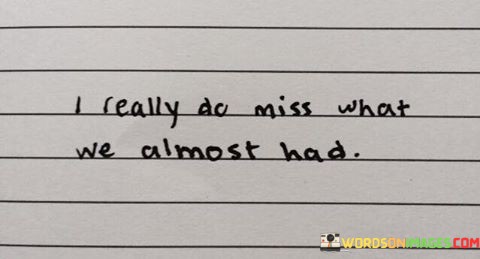 I really do miss what
we almost had.
WORDSONIMAGES.COM